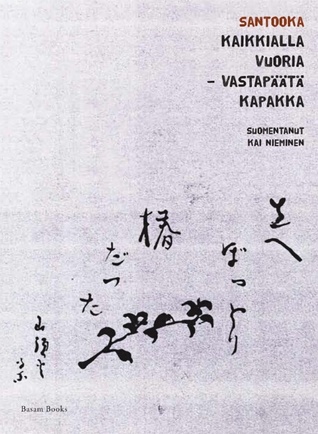 SANTOOKA
KAIKKIALLA
VUORIA
– VASTAPÄÄTÄ
KAPAKKA
SUOMENTANUT
KAI NIEMINEN
笠へ
ぽつとり
椿
だつた
山頭火
Basam Books